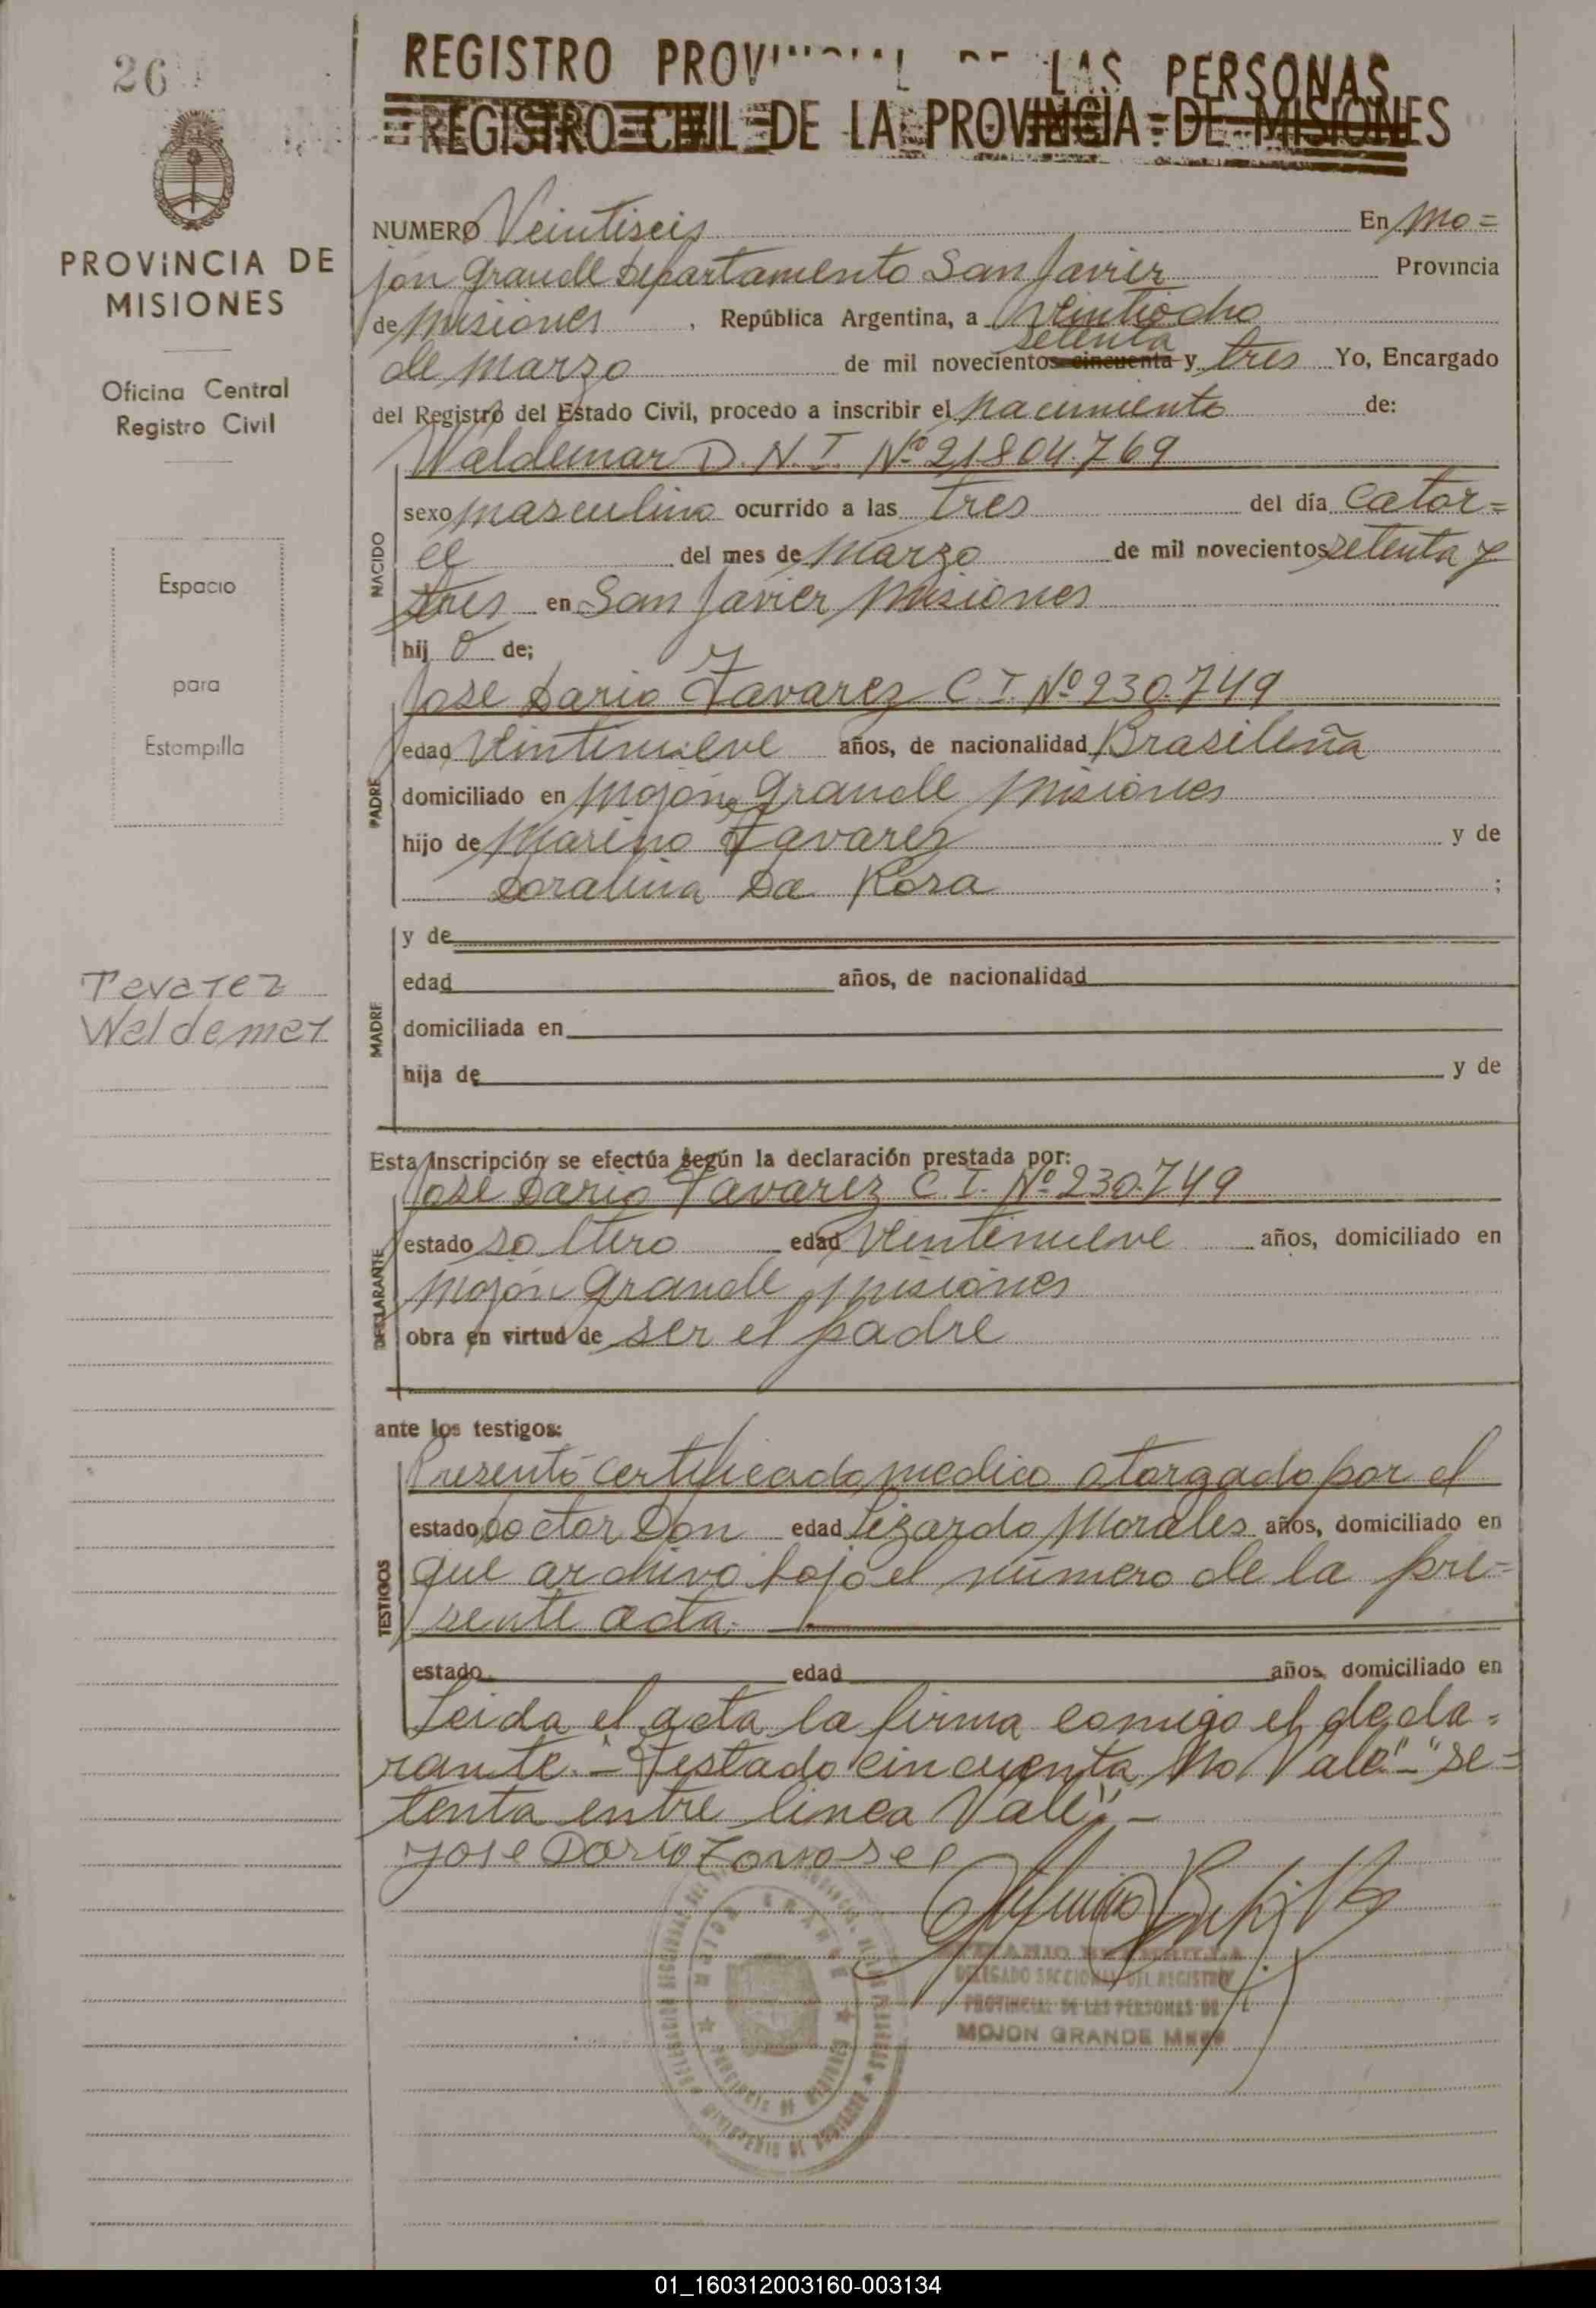 26
REGISTRO PROVINCIAL DE LAS PERSONAS
REGISTRO CIVIL DE LA PROVINCIA DE MISIONES
PROVINCIA DE
MISIONES
Oficina Central
Registro Civil
Espacio
para
Estampilla
Tavarez
Waldemar
NUMERO Veintiseis En Mo=
jón Grande Departamento San Javier Provincia
de Misiones , República Argentina, a Veintiocho
setenta
de Marzo de mil novecientos cincuenta y tres Yo, Encargado
del Registro del Estado Civil, procedo a inscribir el Nacimiento de:
Waldemar D.N.I. Nº 21804.769
NACIDO
sexo masculino ocurrido a las tres del día Cator=
ce del mes de Marzo de mil novecientos setenta y
tres en San Javier Misiones
hij o de;
Jose Dario Tavarez C.I. Nº 230.749
PADRE
edad Veintinueve años, de nacionalidad Brasileña
domiciliado en Mojón Grande Misiones
hijo de Marino Tavarez y de
Doralina Da Rosa ;
MADRE
y de
edad años, de nacionalidad
domiciliada en
hija de y de
Esta Inscripción se efectúa según la declaración prestada por:
Jose Dario Tavarez C.I. Nº 230.749
DECLARANTE
estado soltero edad Veintinueve años, domiciliado en
Mojón Grande Misiones
obra en virtud de ser el padre
ante los testigos:
Presentó certificado medico otorgado por el
TESTIGOS
estado Doctor Don edad Lizardo Morales años, domiciliado en
que archivo bajo el número de la pre=
sente acta.
estado edad años, domiciliado en
Leida el acta la firma comigo el decla=
rante.- Testado "cincuenta No Vale" - "se=
tenta entre linea Vale".-
Jose Dario
DELEGADO SECCIONAL DEL REGISTRO
PROVINCIAL DE LAS PERSONAS DE
MOJON GRANDE Mnes
01_160312003160-003134